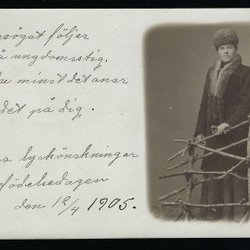 följer
på ungdomsstig.
du minst det anar
det på dig.
lyckönskningar
födelsedagen
den 12/4 1905.